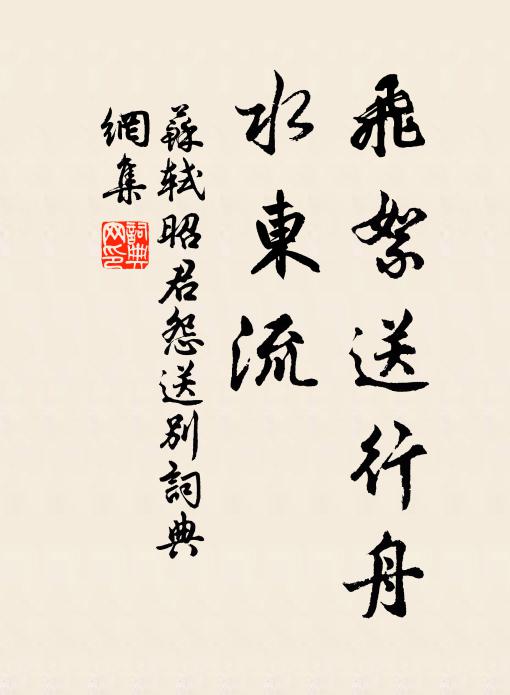 飛絮送行舟
水東流
蘇軾昭君怨送別詞典
網集
詞典
网印